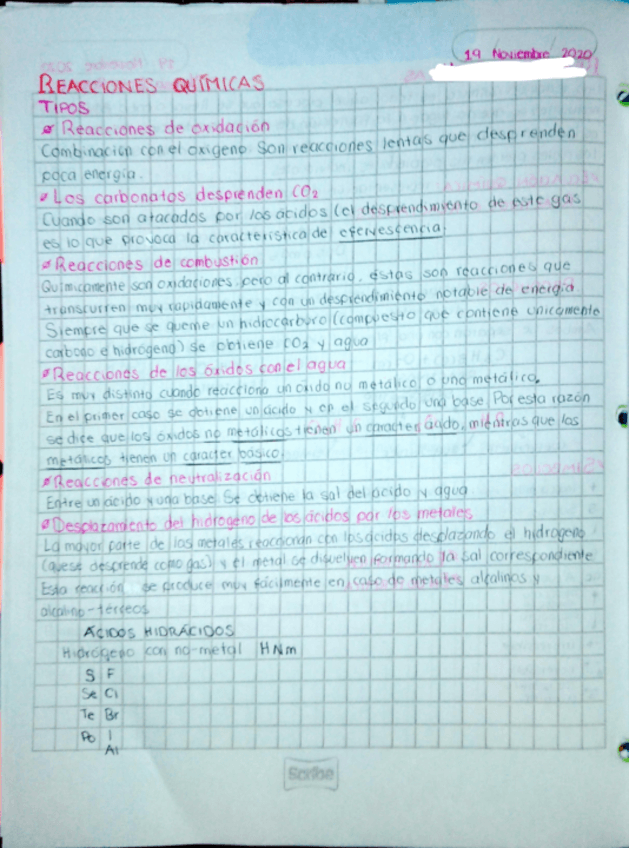 19 Noviembre 2020
REACCIONES QUÍMICAS
TIPOS
Reacciones de oxidación
Combinación con el oxigeno Son reacciones lentas que desprenden
poca energía.
Los carbonatos desprenden CO2
Cuando son atacados por los ácidos (el desprendimiento de este gas
es lo que provoca la característica de efervescencia.
Reacciones de combustión
Químicamente son oxidaciones, pero al contrario, éstas son reacciones que
transcurren muy rapidamente y con un desprendimiento notable de energía.
Siempre que se queme un hidrocarburo (compuesto que contiene unicamente
carbono e hidrógeno) se obtiene CO2 y agua
Reacciones de los óxidos con el agua
Es muy distinto cuando reacciona un oxido no metálico o uno metálico.
En el primer caso se obtiene un ácido y en el segundo una base. Por esta razón
se dice que los óxidos no metálicos tienen un caracter ácido, mientras que los
metálicos tienen un caracter básico.
Reacciones de neutralización
Entre un ácido y una base. Se obtiene la sal del acido y agua
Desplazamiento del hidrogeno de los ácidos por los metales
La mayor parte de los metales reaccionan con los acidos desplazando el hidrogeno
(que se desprende como gas) y el metal se disuelven formando la sal correspondiente
Esta reacción se produce muy fácilmente en caso de metales alcalinos y
alcalino-térreos
ÁCIDOS HIDRÁCIDOS
Hidrógeno con no-metal HNm
S F
Se Cl
Te Br
Po I
At
Scribe